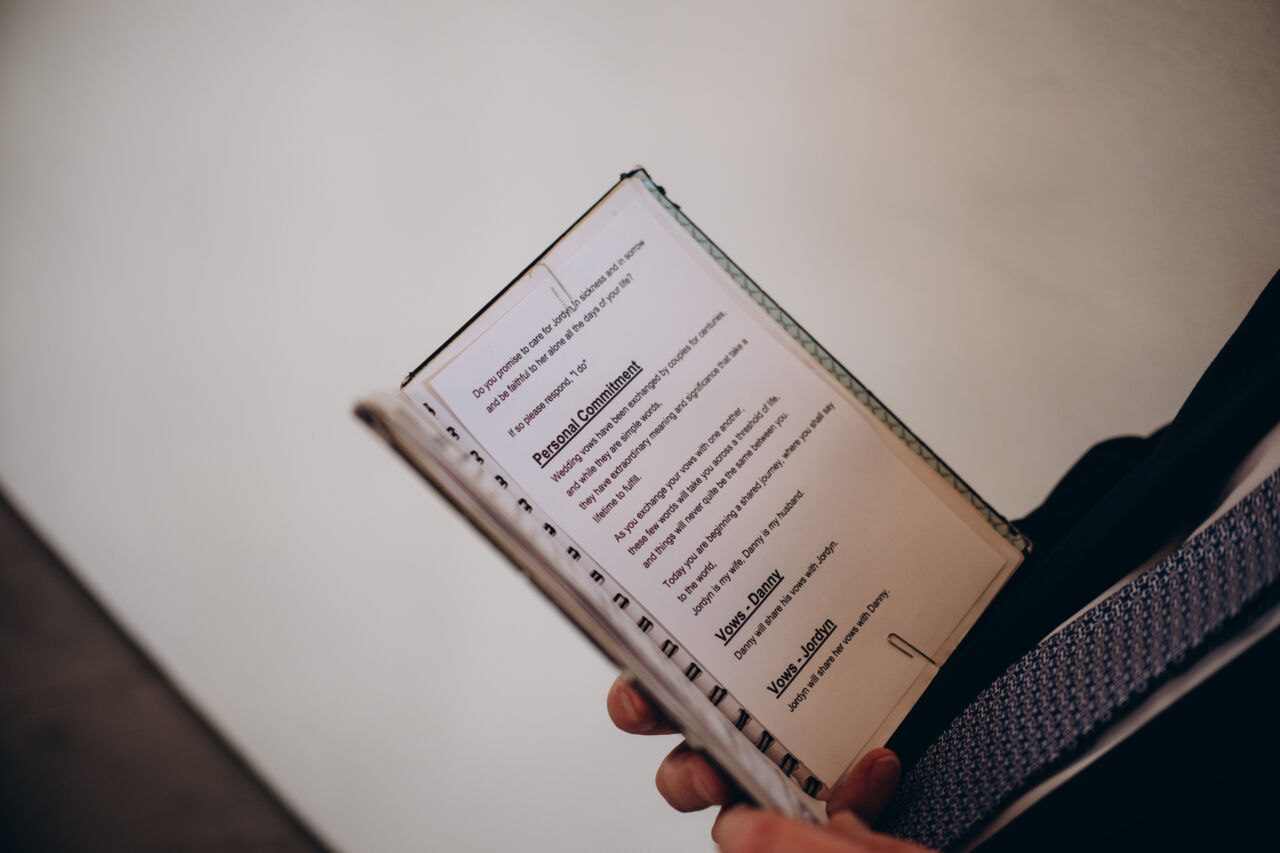 Do you promise to care for Jordyn in sickness and in sorrow
and be faithful to her alone all the days of your life?
If so please respond, "I do"
Personal Commitment
Wedding vows have been exchanged by couples for centuries,
and while they are simple words,
they have extraordinary meaning and significance that take a
lifetime to fulfill.
As you exchange your vows with one another,
these few words will take you across a threshold of life,
and things will never quite be the same between you.
Today you are beginning a shared journey, where you shall say
to the world,
Jordyn is my wife, Danny is my husband.
Vows - Danny
Danny will share his vows with Jordyn.
Vows - Jordyn
Jordyn will share her vows with Danny.